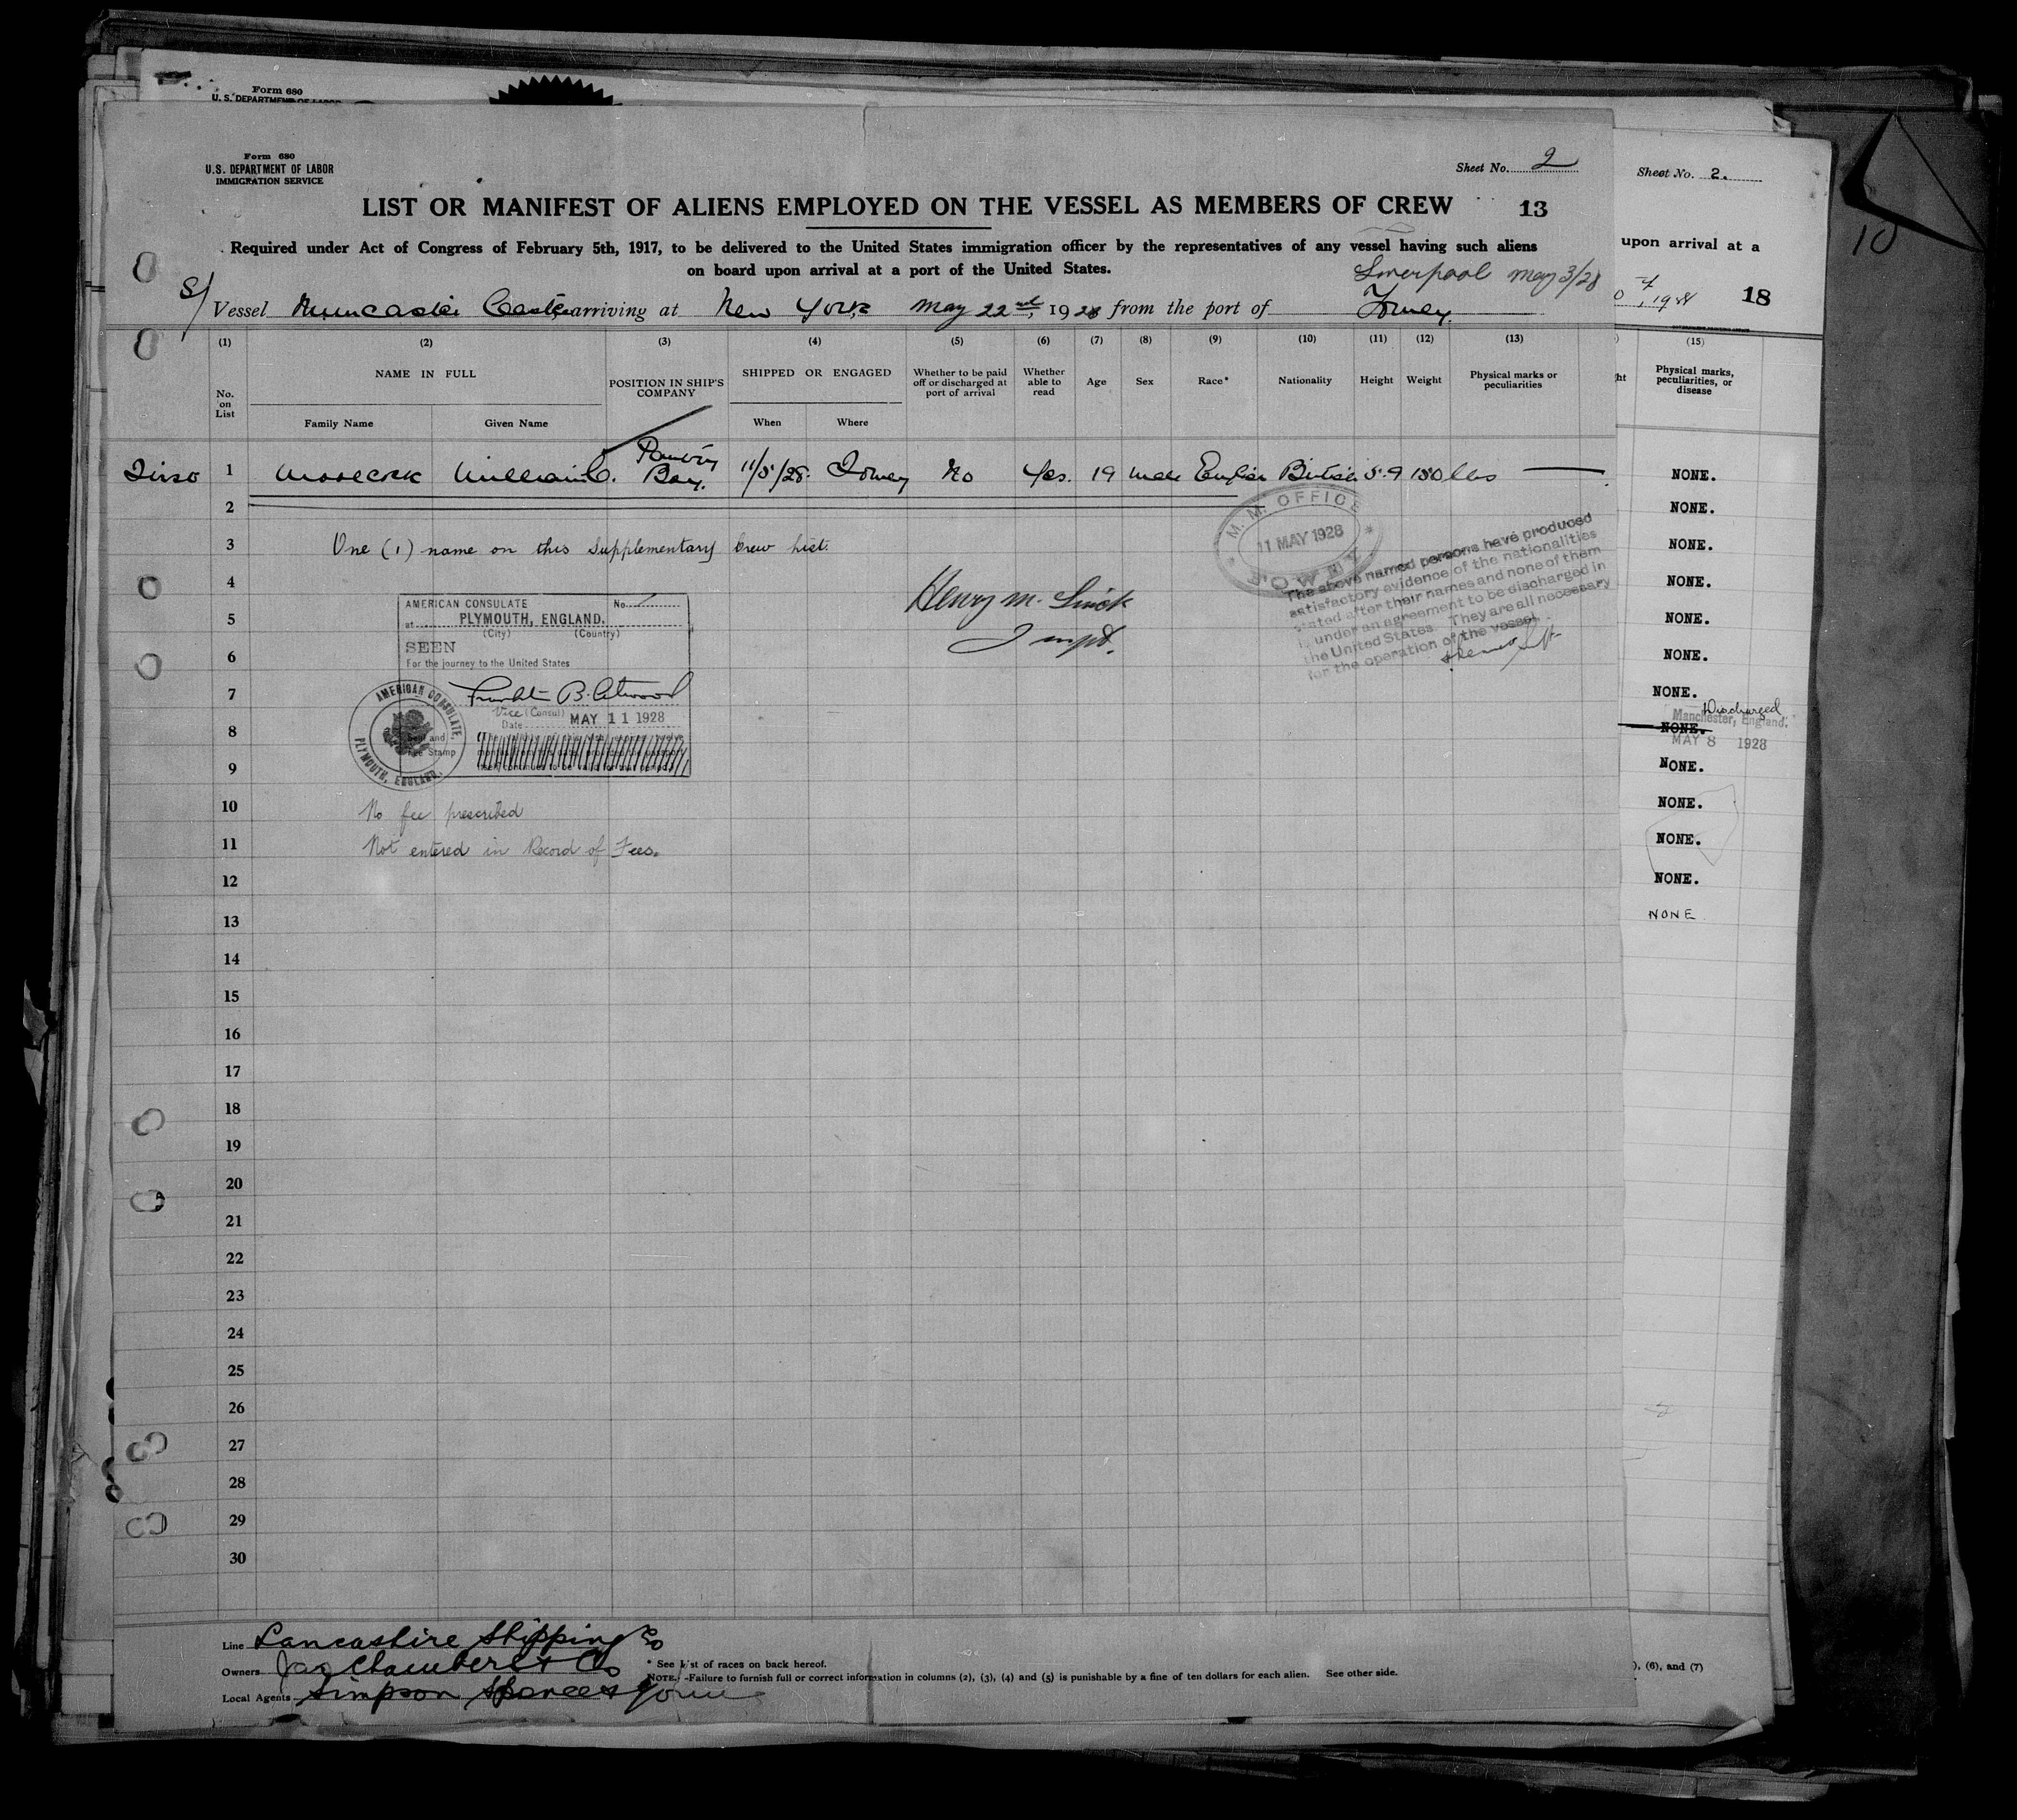 Form 680
U. S. DEPARTMENT OF LABOR
Form 680
U.S. DEPARTMENT OF LABOR
IMMIGRATION SERVICE
Sheet No. 2
Sheet No. 2.
LIST OR MANIFEST OF ALIENS EMPLOYED ON THE VESSEL AS MEMBERS OF CREW 13
Required under Act of Congress of February 5th, 1917, to be delivered to the United States immigration officer by the representatives of any vessel having such aliens
on board upon arrival at a port of the United States.
upon arrival at a
10
Liverpool May 3/28
S/ Vessel Muncaster Castle, arriving at New York, May 22nd, 1928 from the port of Fowey.
18
(1) (2) (3) (4) (5) (6) (7) (8) (9) (10) (11) (12) (13) (15)
No. on List
NAME IN FULL
Family Name Given Name
POSITION IN SHIP'S COMPANY
SHIPPED OR ENGAGED
When Where
Whether to be paid off or discharged at port of arrival
Whether able to read
Age
Sex
Race*
Nationality
Height
Weight
Physical marks or peculiarities
Physical marks, peculiarities, or disease
1 Moorcock William C. Pantry Boy. 11/5/28. Fowey No Yes. 19 Male English British 5.9 150 lbs —
NONE.
2
NONE.
3 One (1) name on this Supplementary Crew List.
NONE.
4
NONE.
5
NONE.
6
NONE.
7
NONE.
8
NONE.
Discharged
Manchester, England.
MAY 8 1928
9
NONE.
10
NONE.
11
NONE.
12
NONE.
13
NONE
14
15
16
17
18
19
20
21
22
23
24
25
26
27
28
29
30
M. M. OFFICE
11 MAY 1928
FOWEY
The above named persons have produced
satisfactory evidence of the nationalities
stated after their names and none of them
is under an agreement to be discharged in
the United States. They are all necessary
for the operation of the vessel.
Henry M.
AMERICAN CONSULATE No.
at PLYMOUTH, ENGLAND.
(City) (Country)
SEEN
For the journey to the United States
Franklin B. Atwood
Vice (Consul)
Date MAY 11 1928
Seal and
Fee Stamp
AMERICAN CONSULATE,
PLYMOUTH, ENGLAND.
No fee prescribed
Not entered in Record of Fees.
Line Lancashire Shipping Co
Owners Jas Chambers & Co
Local Agents Simpson Spence & Young
* See List of races on back hereof.
NOTE.-Failure to furnish full or correct information in columns (2), (3), (4) and (5) is punishable by a fine of ten dollars for each alien. See other side.
), (6), and (7)